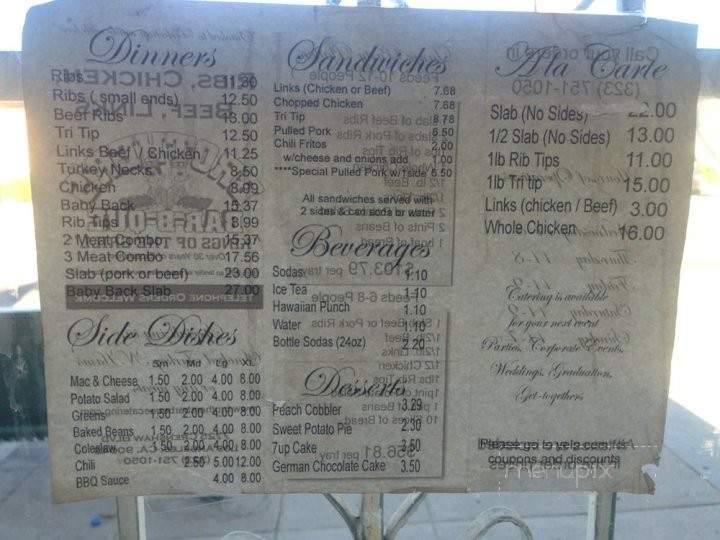 Dinners
Ribs
Ribs ( small ends) 12.50
Beef Ribs 13.00
Tri Tip 12.50
Links Beef / Chicken 11.25
Turkey Necks 8.50
Chicken 8.99
Baby Back 15.37
Rib Tips 8.99
2 Meat Combo 15.37
3 Meat Combo 17.56
Slab (pork or beef) 23.00
Baby Back Slab 27.00
Side Dishes
Sm Md Lg XL
Mac & Cheese 1.50 2.00 4.00 8.00
Potato Salad 1.50 2.00 4.00 8.00
Greens 1.50 2.00 4.00 8.00
Baked Beans 1.50 2.00 4.00 8.00
Coleslaw 1.50 4.00 8.00
Chili 2.50 5.00 12.00
BBQ Sauce 4.00 8.00
Sandwiches
Links (Chicken or Beef) 7.68
Chopped Chicken 7.68
Tri Tip 8.78
Pulled Pork 6.50
Chili Fritos 2.00
w/cheese and onions add 1.00
****Special Pulled Pork w/1side 6.50
All sandwiches served with
2 sides & can soda or water
Beverages
Sodas 1.10
Ice Tea 1.10
Hawaiian Punch 1.10
Water 1.10
Bottle Sodas (24oz) 2.20
Desserts
Peach Cobbler 3.29
Sweet Potato Pie 2.30
7up Cake 3.50
German Chocolate Cake 3.50
A la Carte
Slab (No Sides)
1/2 Slab (No Sides) 13.00
1lb Rib Tips 11.00
1lb Tri tip 15.00
Links (chicken / Beef) 3.00
Whole Chicken 16.00
Catering is available
for your next event
Parties, Corporate Events,
Weddings, Graduation,
Get-togethers
Please go to yelp.com for
coupons and discounts
menupix